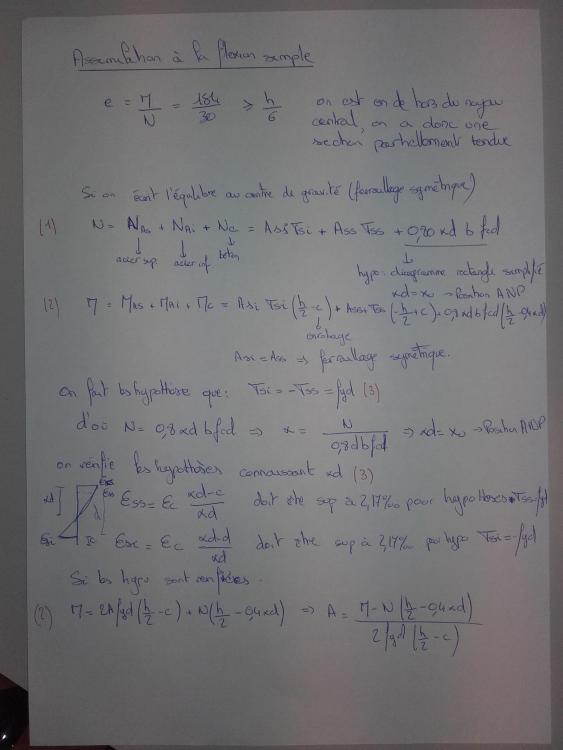 Assimilation à la flexion simple
e = M/N = 184/30 ⩾ h/6 on est en dehors du noyau
central, on a donc une
section partiellement tendue
Si on écrit l'équilibre au centre de gravité (ferraillage symétrique)
(1) N = NAs + NAi + Nc = Asi σsi + Ass σss + 0,80 αd b fcd
acier sup. acier inf béton
hypo: diagramme rectangle simplifié
αd = xu → Position ANP
(2) M = MAs + MAi + Mc = Asi σsi (h/2 - c) + Ass σss (-h/2 + c) + 0,8 αd b fcd (h/2 - 0,4αd)
enrobage
Asi = Ass => ferraillage symétrique.
On fait les hypothèse que: σsi = -σss = fyd (3)
d'où N = 0,8 αd b fcd => α = N/(0,8 d b fcd) => αd = xu → Position ANP
on vérifie les hypothèses connaissant αd (3)
εss = εc (αd-c)/αd doit être sup à 2,17‰ pour hypothèses σss = fyd
εsi = εc (αd-d)/αd doit être sup à 2,17‰ pr hypo σsi = -fyd
Si les hypo sont vérifiées.
(2) M = 2A fyd (h/2 - c) + N (h/2 - 0,4αd) => A = (M - N (h/2 - 0,4αd))/(2 fyd (h/2 - c))